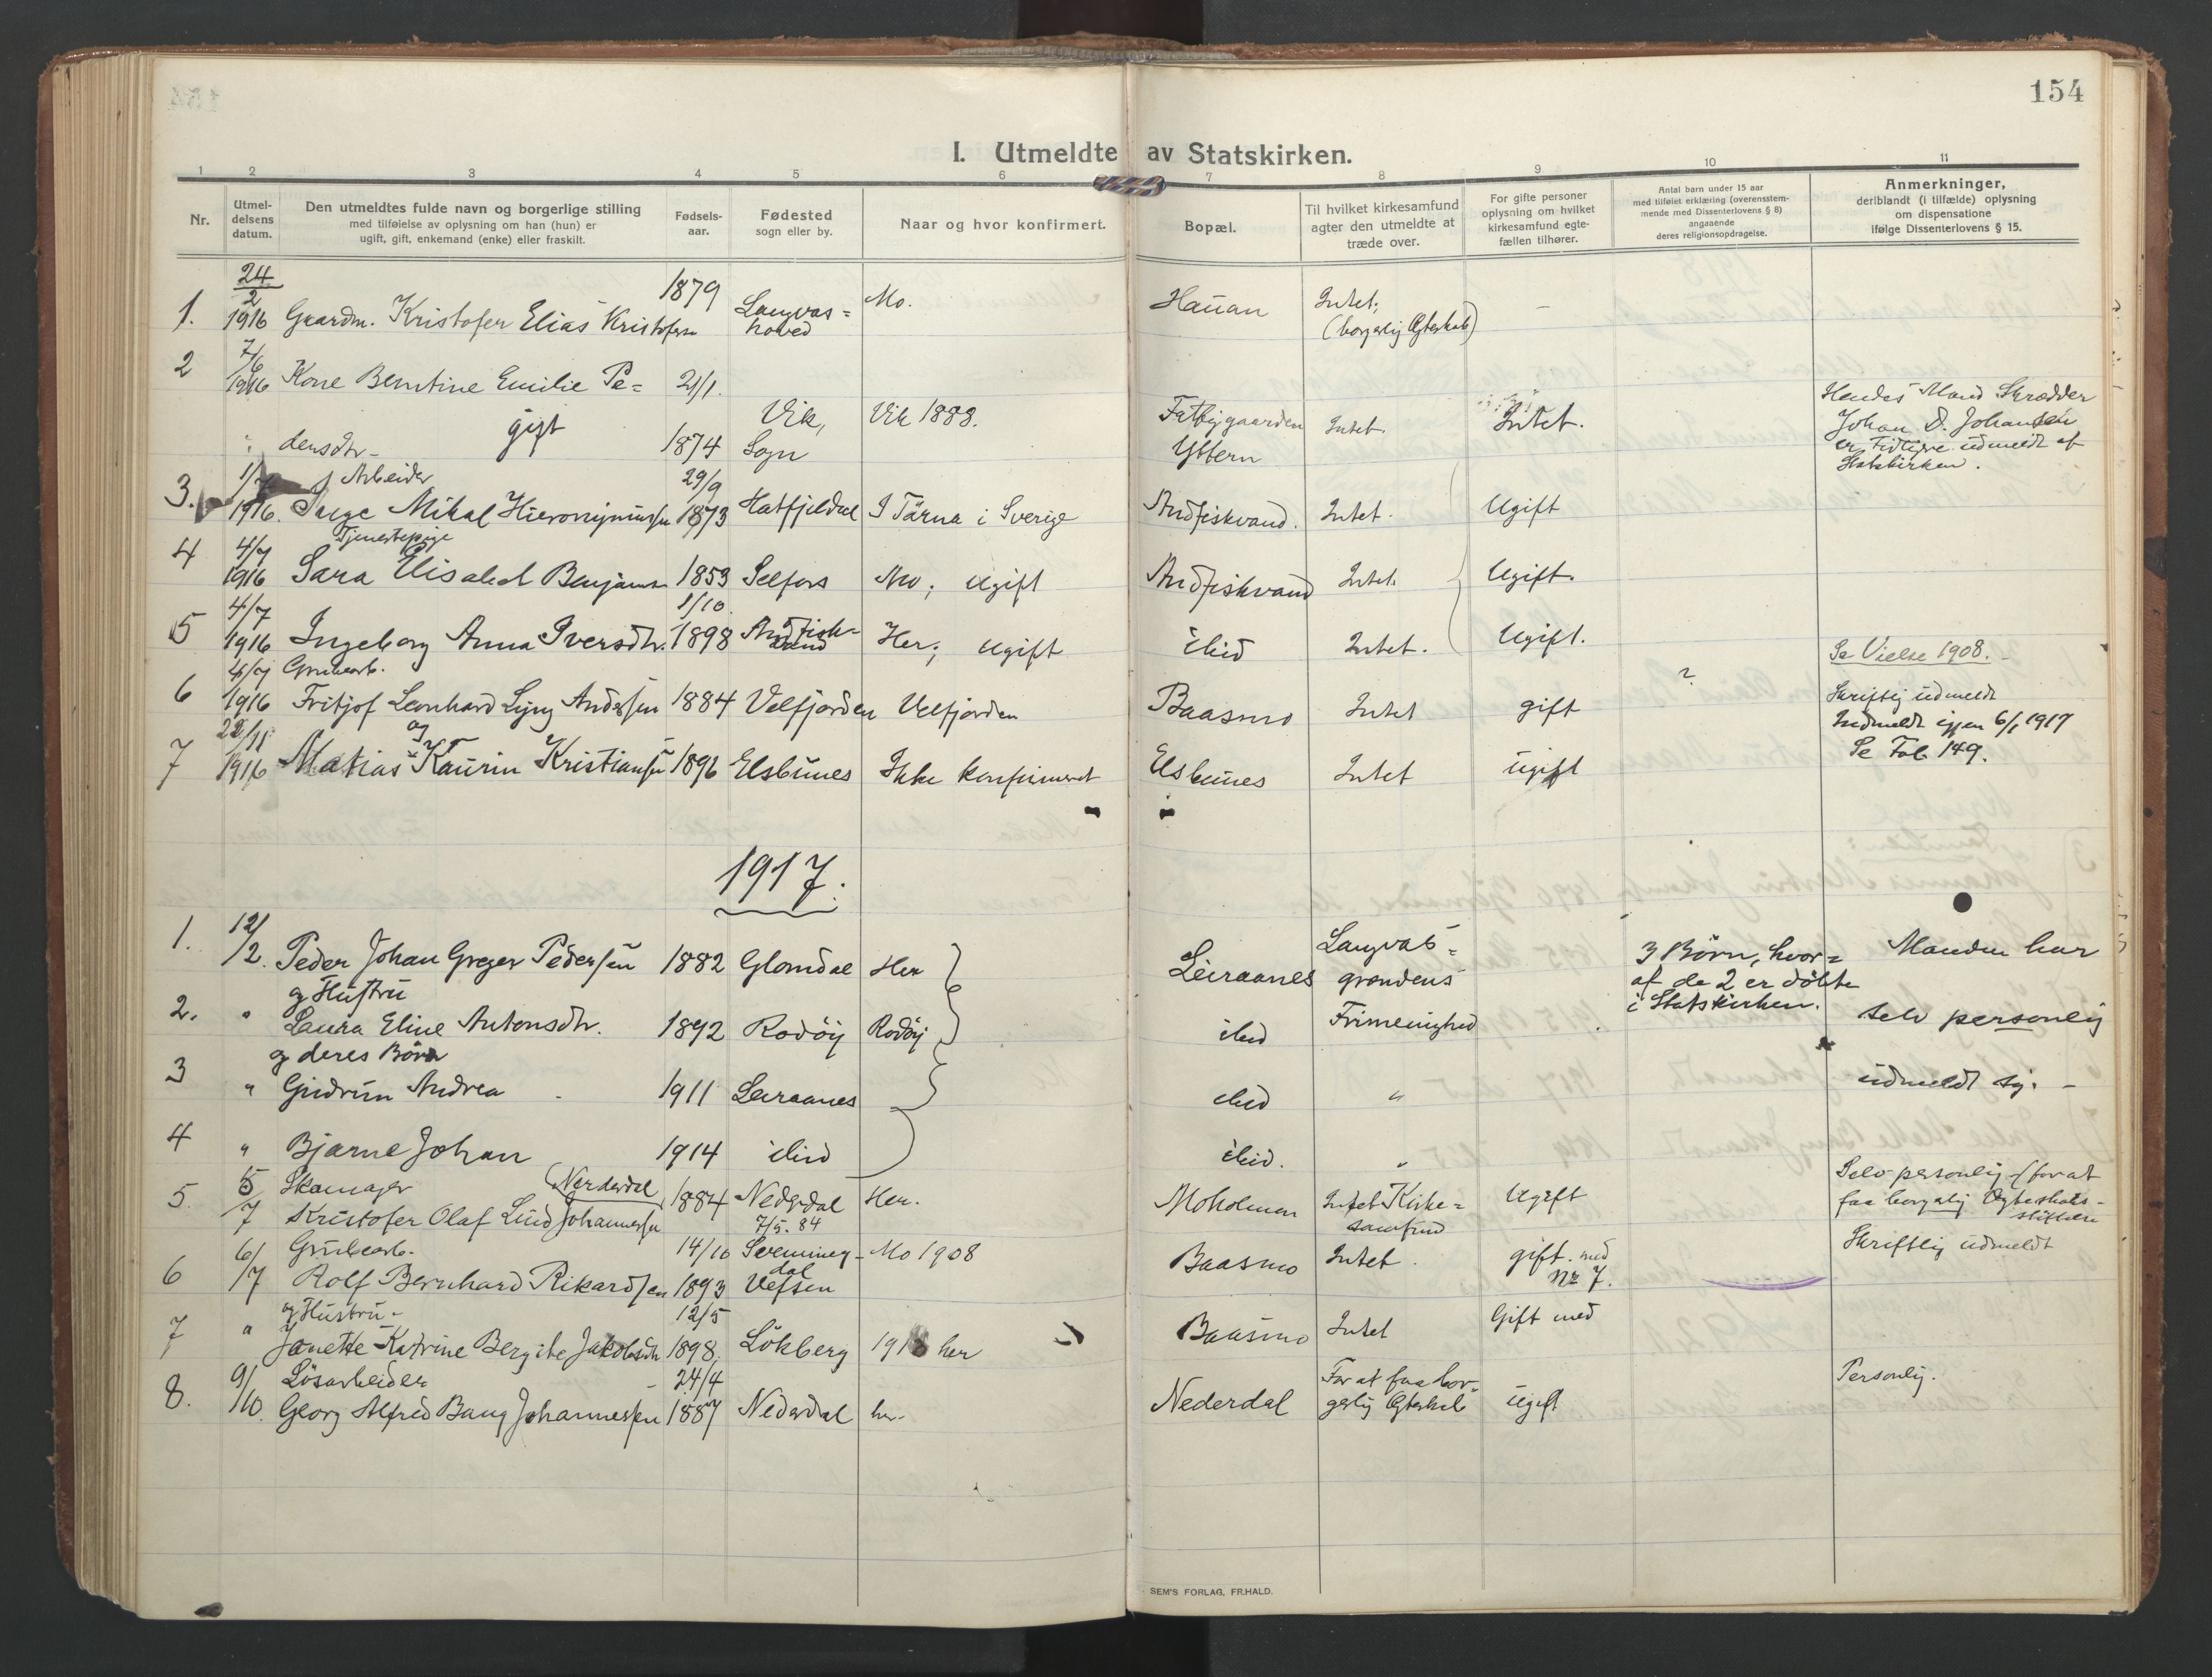 154
I. Utmeldte av Statskirken.
1 2 3 4 5 6 7 8 9 10 11
Nr.
Utmel-
delsens
datum.
Den utmeldtes fulde navn og borgerlige stilling
med tilføielse av oplysning om han (hun) er
ugift, gift, enkemand (enke) eller fraskilt.
Fødsels-
aar.
Fødested
sogn eller by.
Naar og hvor konfirmert.
Bopæl.
Til hvilket kirkesamfund
agter den utmeldte at
træde over.
For gifte personer
oplysning om hvilket
kirkesamfund egte-
fællen tilhører.
Antal barn under 15 aar
med tilføiet erklæring (overensstem-
mende med Dissenterlovens § 8)
angaaende
deres religionsopdragelse.
Anmerkninger,
deriblandt (i tilfælde) oplysning
om dispensatione
ifølge Dissenterlovens § 15.
1. 24/2 1916 Gaardm. Kristofer Elias Kristofersen 1879 Langvas=
hoved Mo. Hauan Intet;
(borgerlig Ægteskab) –
2 7/6 1916 Kone Berntine Emilie Pe=
densdtr– gift 21/1. 1874 Vik,
Sogn Vik 1888. Ytteren Intet. Intet.
Hendes Mand Skrædder
Johan D. Johansen
er tidligre udmeldt af
Statskirken.
3. 1/7 1916. Arbeider
Inge Mikal Hieronymussen 29/9 1873 Hatfjeldal I Tärna i Sverige Andfiskvand. Intet. Ugift
4 4/7 1916 Tjenestepige
Sara Elisabet Benjamsn 1853 Selfors Mo; ugift Andfiskvand Intet. Ugift.
5 4/7 1916 Ingeborg Anna Iversdtr. 1/10. 1898 Andfisk=
vand Her; ugift ibid Intet. Ugift.
6 4/7 1916 Grubearb.
Fritjof Leonhard Lyng Andersen 1884 Velfjorden Velfjorden Baasmo Intet gift ?
Se Vielse 1908. –
Skriftlig udmeldt
Indmeldt igjen 6/1 1917
Se Fol. 149.
7 22/11 1916 Matias Kaurin Kristiansen 1896 Elsbunes Ikke konfirmeret Elsbunes Intet ugift
1917.
1. 12/2. Peder Johan Greger Pedersen 1882 Glomdal Her Leiraanes Langvas=
grændens
Frimenighed
3 Børn, hvor=
af de 2 er døbte
i Statskirken.
Manden har
selv personlig
udmeldt sig. –
2. " og Hustru
Laura Eline Antonsdtr. 1892 Rodøy Rodøy ibid
3 " og deres Börn
Gudrun Andrea 1911 Leiraanes ibid "
4 " Bjarne Johan 1914 ibid ibid. "
5. 5/7 Skomager (Nerderdal
Kristofer Olaf Lind Johannessen 1884 Nederdal
7/5. 84 Her. Moholmen Intet Kirke=
samfund Ugift
Selv personlig (for at
faa borgerlig Ægteskabs-
stiftelse
6 6/7 Grubearb.
Rolf Bernhard Rikardsen 14/10 1893 Svenning-
dal
Vefsen Mo 1908 Baasmo Intet. gift. med
Nr 7. Skriftlig udmeldt
7 " og Hustru –
Janette Katrine Bergite Jakobsdtr 12/5 1898. Lökberg her Baasmo Intet Gift med
8. 9/10. Lösarbeider
Georg Alfred Bang Johannessen 24/4 1887 Nederdal her. Nederdal For at faa bor-
gerlig Ægteskab ugift Personlig.
SEM'S FORLAG, FR.HALD.